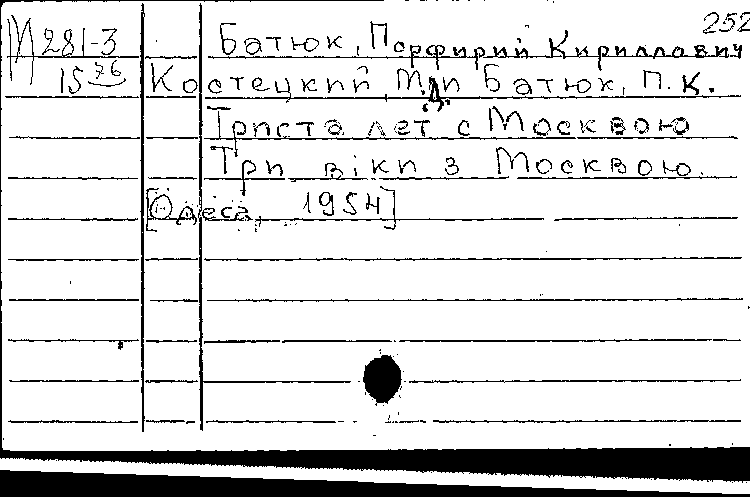 252
М 281-3 Батюк, Порфирий Кириллавич
15 76 Костецкий, Д. и Батюк, П. К.
Триста лет с Москвою
Три віки з Москвою.
[Одеса, 1954]